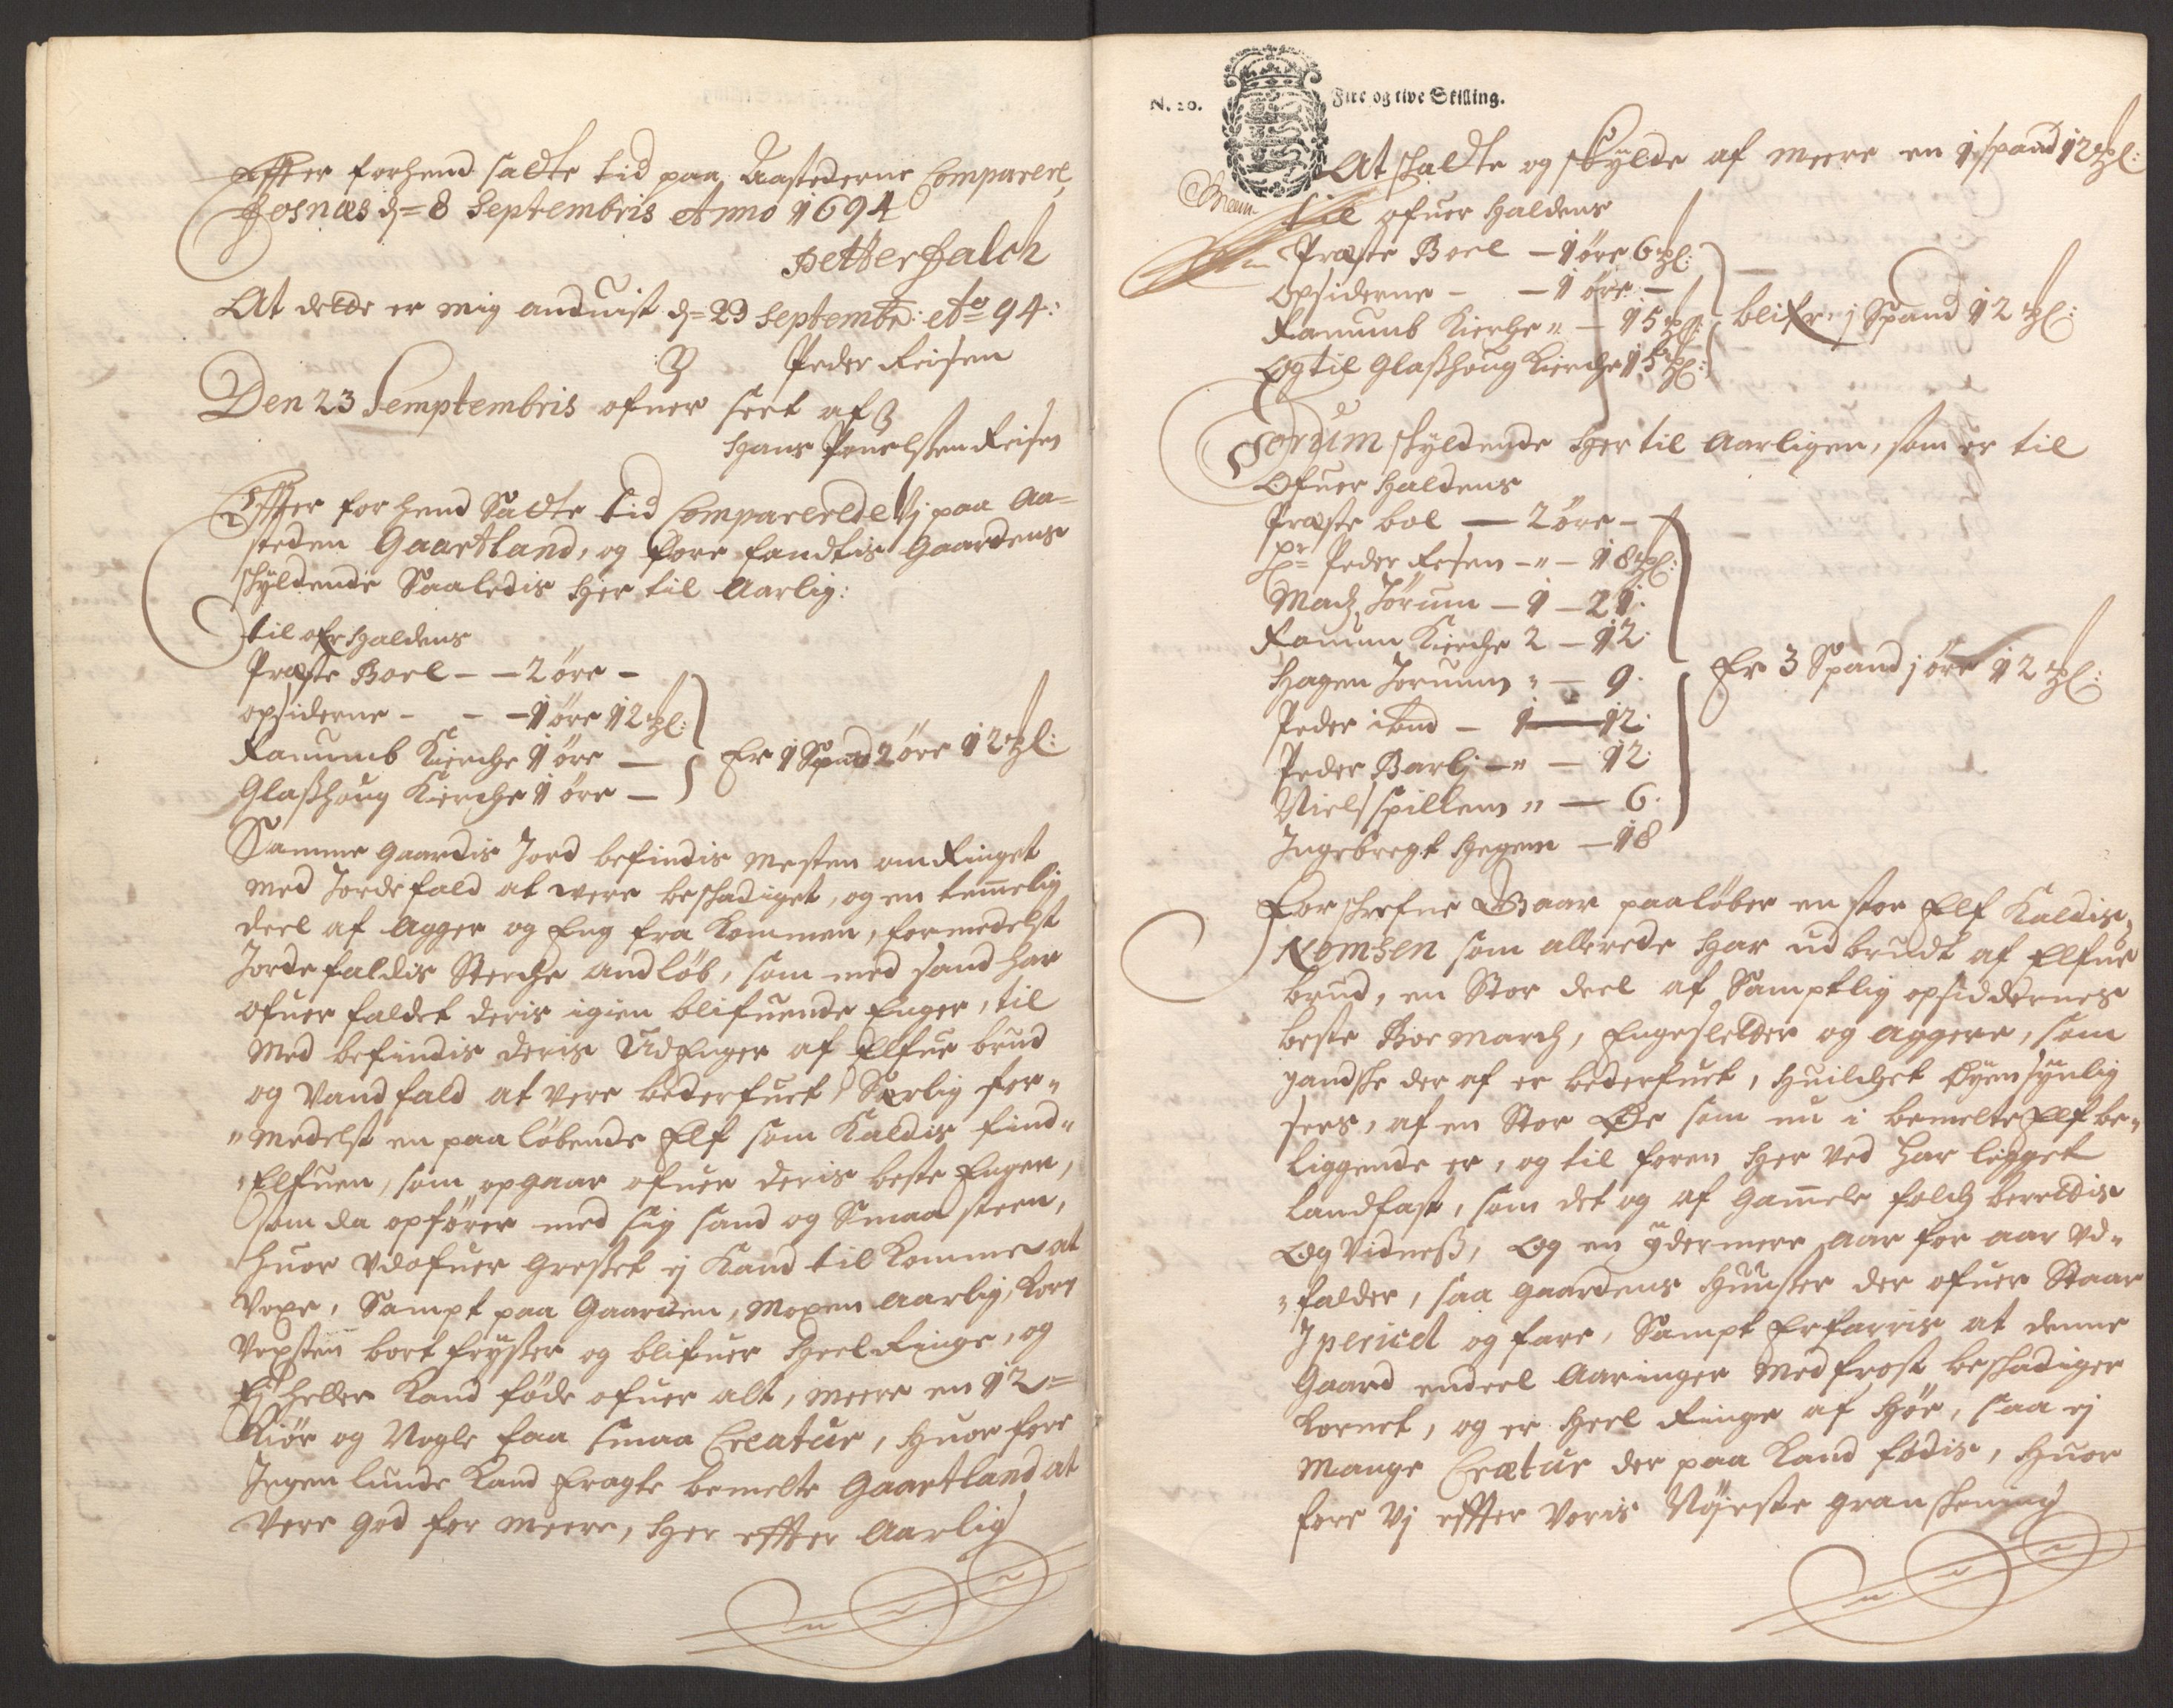 Effter forhend satte tid paa Aastederne Comparere
Fosnæs d= 8 Septembris Anno 1694
Petter Falch
At dette er mig anduist d= 23 Septembr: Ao 94:
Peder Reisen
Den 23 Semptembris ofuer seet af
Hans Pouelssen Reisen
Effter forhend Satte tid Comparerede Vj paa Aa=
steden Gaartland, og fore fandtis Gaardens
skyldende Saaledis her til Aarlig:
til ofr Haldens
Præste Boel - - 2 øre -
opsiderne - - - 1 øre 12 ℔:
Ranumb Kierche 1 øre -
Glasshoug Kierche 1 øre -
Er 1 Spand 2 øre 12 ℔:
Samme gaardis Jord befindis mesten omringet
med Jordefald at were beskadiget, og en temmelig
deel af Agger og Eng fra kommen, formedelst
Jordefaldis Sterche andløb, som med sand har
ofuer faldet deris igien blifuende Enger, til
med befindis deris UdEnger af Elfue brud
og Vandfald at vere bederfuet, Særlig for-
medelst en paaløbende Elf som Kaldis find-
Elfuen, som opgaar ofuer deris beste Enger,
som da opfører med sig sand og Smaa steen,
huor Udofuer gresset ej Kand til komme at
Voxe, Sampt paa Gaarden, Moxen Aarlig, Korn
Vexten bort fryster og blifuer heel ringe, og
Ej heller Kand føde ofuer alt, meere en 12=
Kiør og Nogle faa smaa Creatur, huorfore
Ingenlunde Kand Eragte bemelte Gaartland at
Vere god for meere, her effter Aarlig
N. 20. Fire og tive Skilling.
At skatte og skylde af meere en 1 spand 12 ℔:
til ofuer Haldens
Præste Boel - 1 øre 6 ℔:
Opsiderne - - 1 øre -
Ranumb Kierche " - 15 ℔:
Og til Glasshoug Kierche 15 ℔:
blifr j Spand 12 ℔:
Jørum skyldende her til Aarligen, som er til
Ofuer Haldens
Præste bol - 2 øre -
Hr Peder Resen - " - 18 ℔:
Madz Jørum - 1 - 21.
Ranum Kierche 2 - 12.
Hagen Jørumm " - 9.
Peder ibnd - 1 - 12.
Peder Barlj - " - 12.
Niels Spillem " - 6.
Ingebregt Hegem - 18
Er 3 Spand j øre 12 ℔:
Forschrefne Gaar paaløber en stor Elf Kaldis,
Nomsen som allerede har udbrudt af Elfue
brud, en Stor deel af Samptlig opsiddernes
beste Boe march, Engesletter og Aggere, som
gandske der af er bederfuet, huilchet Øyensynlig
sees, af en Stor Øe som nu i bemelte Elf be-
liggende er, og til foren her ved har legget
landfast, som det og af gammele folch berettis
Og Vidness, Og en ydermere Aar for aar Ud-
falder, saa gaardens Huusser der ofuer Staar
I pericel og fare, Sampt Erfarris at denne
Gaard endeel Aaringer med frost beskadiger
kornet, og er heel ringe af Høe, saa ej
Mange Creatur der paa Kand fødis, huor
fore Vj effter Voris Nøjeste granskening